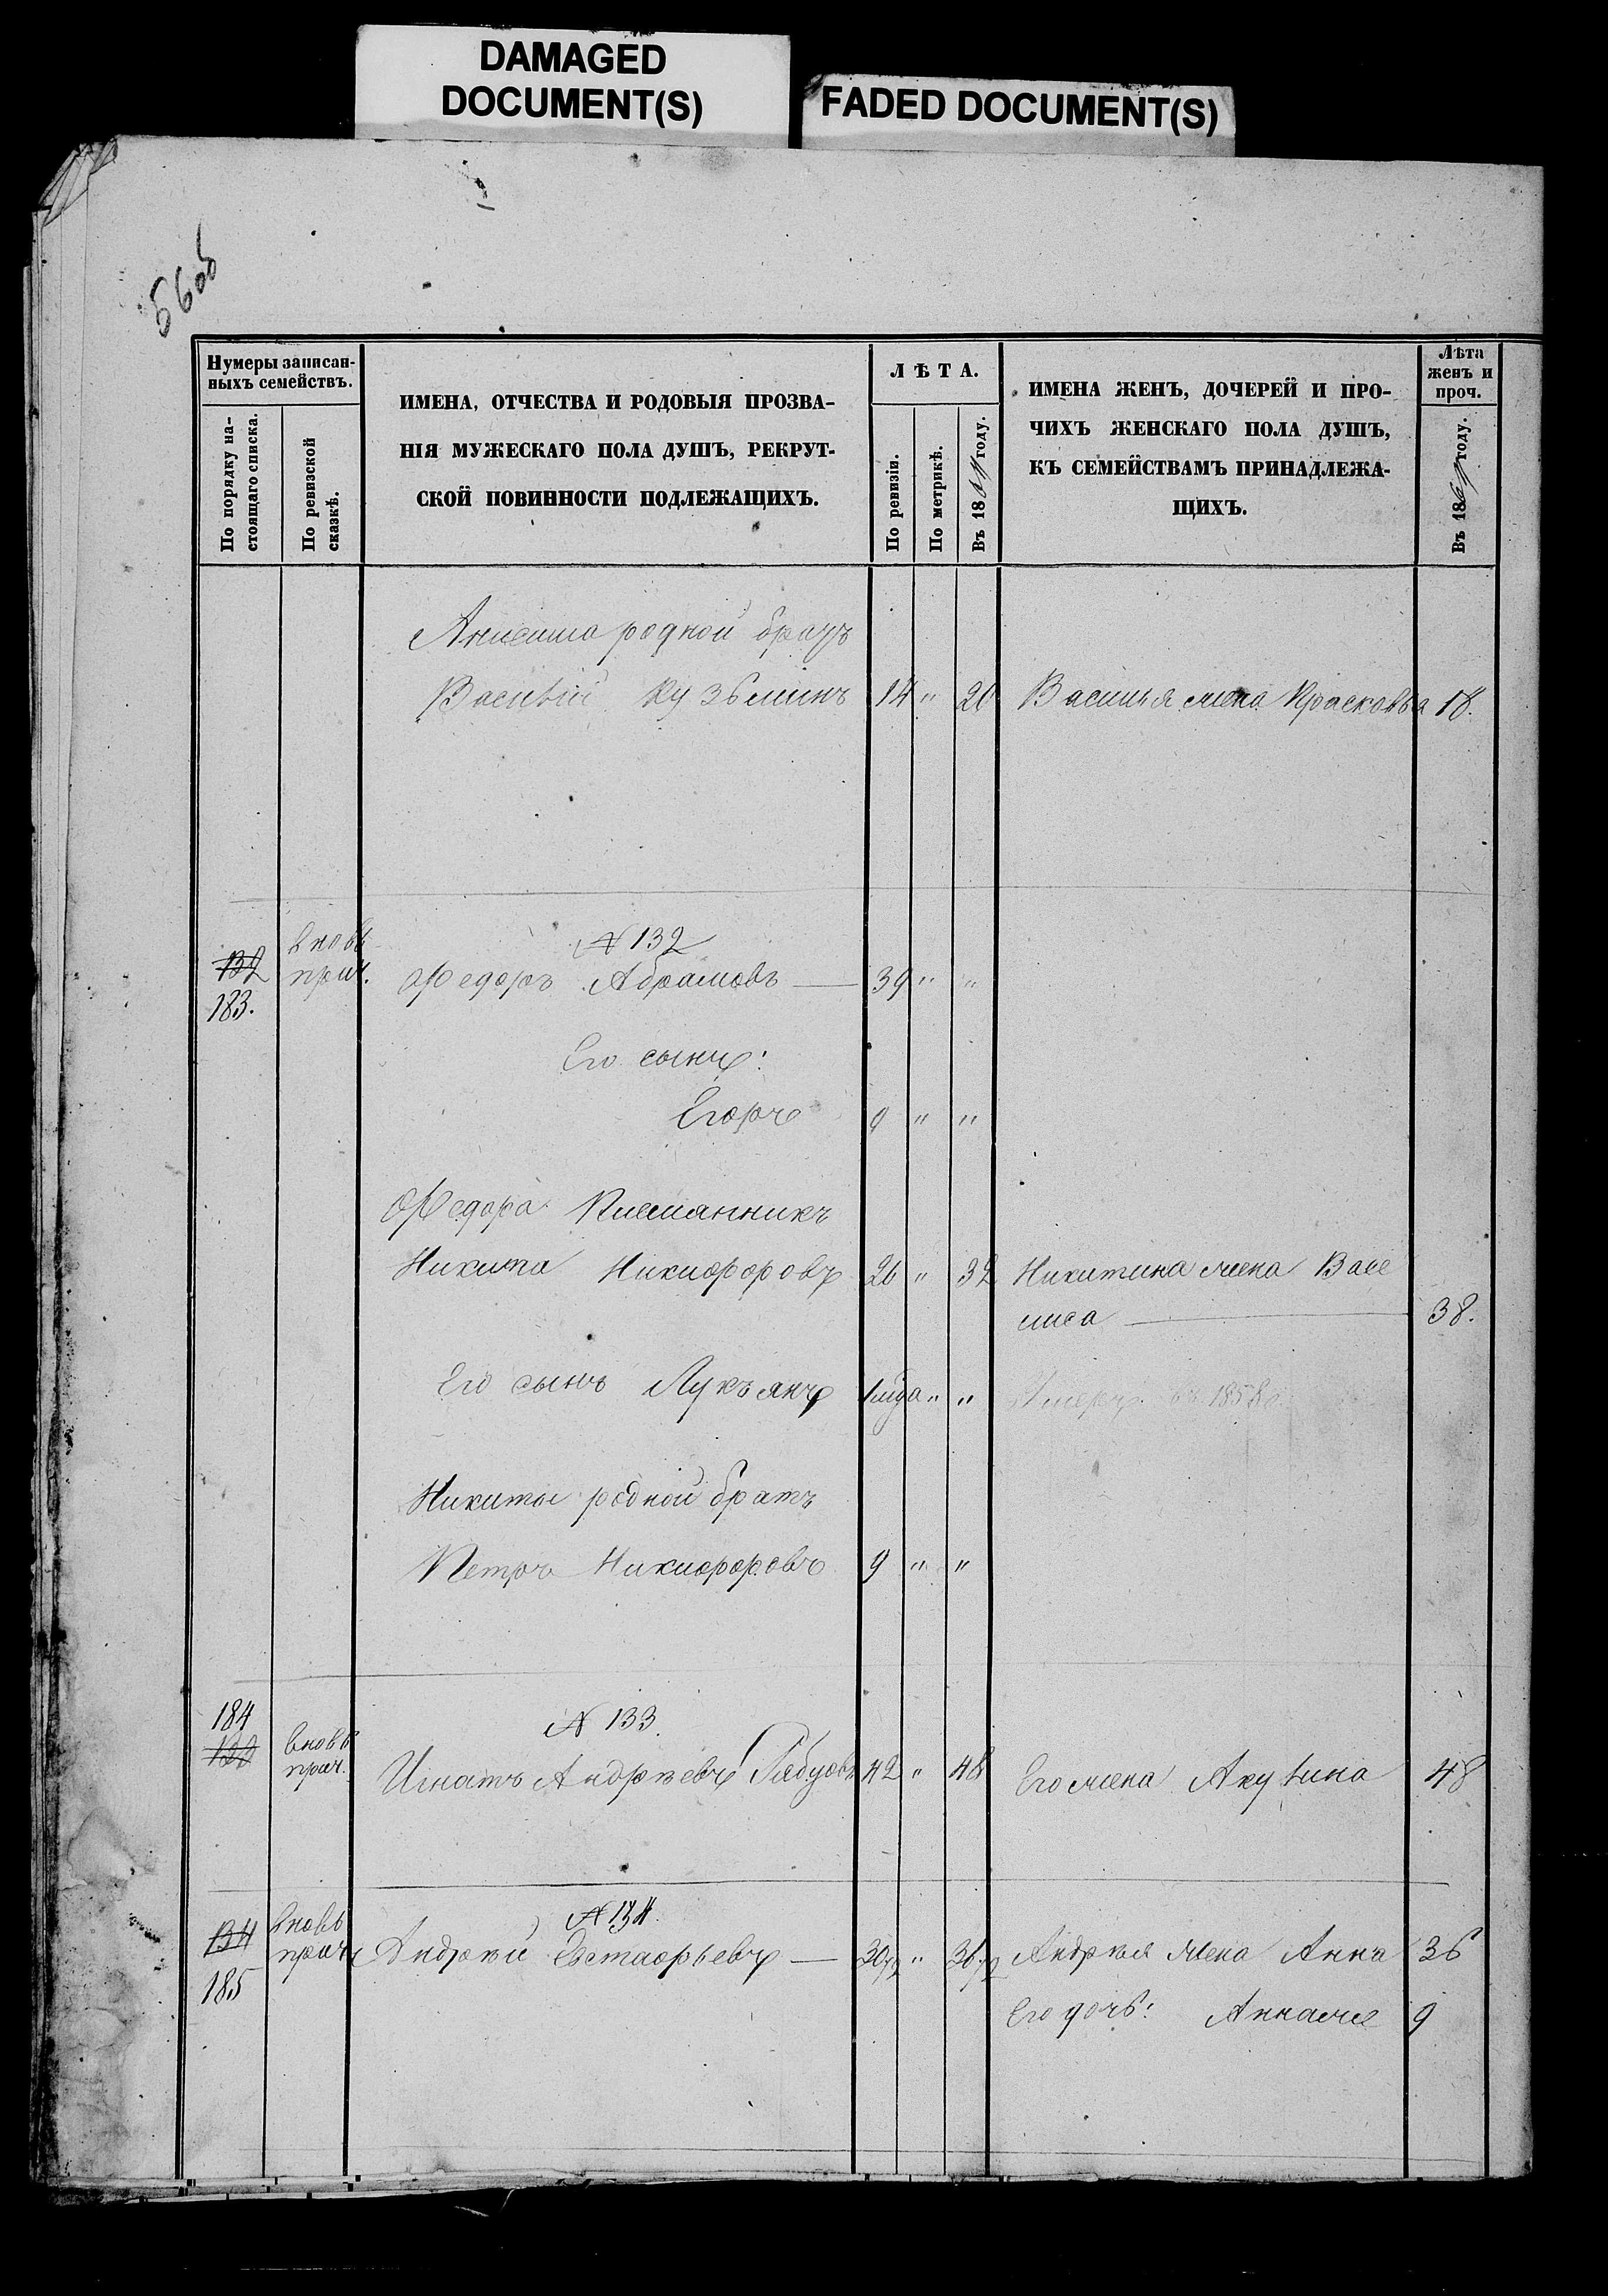 DAMAGED
DOCUMENT(S)
FADED DOCUMENT(S)
56об
Нумеры записан-
ныхъ семействъ.
По порядку на-
стоящаго списка.
По ревизской
сказкѣ.
ИМЕНА, ОТЧЕСТВА И РОДОВЫЯ ПРОЗВА-
НІЯ МУЖЕСКАГО ПОЛА ДУШЪ, РЕКРУТ-
СКОЙ ПОВИННОСТИ ПОДЛЕЖАЩИХЪ.
ЛѢТА.
По ревизіи.
По метрикѣ.
Въ 18 году.
ИМЕНА ЖЕНЪ, ДОЧЕРЕЙ И ПРО-
ЧИХЪ ЖЕНСКАГО ПОЛА ДУШЪ,
КЪ СЕМЕЙСТВАМЪ ПРИНАДЛЕЖА-
ЩИХЪ.
Лѣта
женъ и
проч.
Въ 186 году.
Анисима родной братъ
Василій Кузьминъ 14 " 20 Василья жена Прасковья 18.
вновь № 132
132 прич. Федоръ Абрамовъ — 39 " "
183.
Его сынъ:
Егоръ 9 " "
Федора Племянникъ
Никита Никифоровъ 26 " 32 Никитина жена Васе
лиса — 38.
Его сынъ Лукъянъ 1 года " " Умеръ въ 1858 г.
Никиты родной братъ
Петръ Никифоровъ 9 " "
184 № 133.
133 вновь
прич. Игнатъ Андреевъ 42 " 48 Его жена Акулина 48
вновь № 134.
134 прич. Андрей Евстафьевъ — 30 1/2 " 36 1/2 Андрея жена Анна 36
185
Его дочь: Анна 9